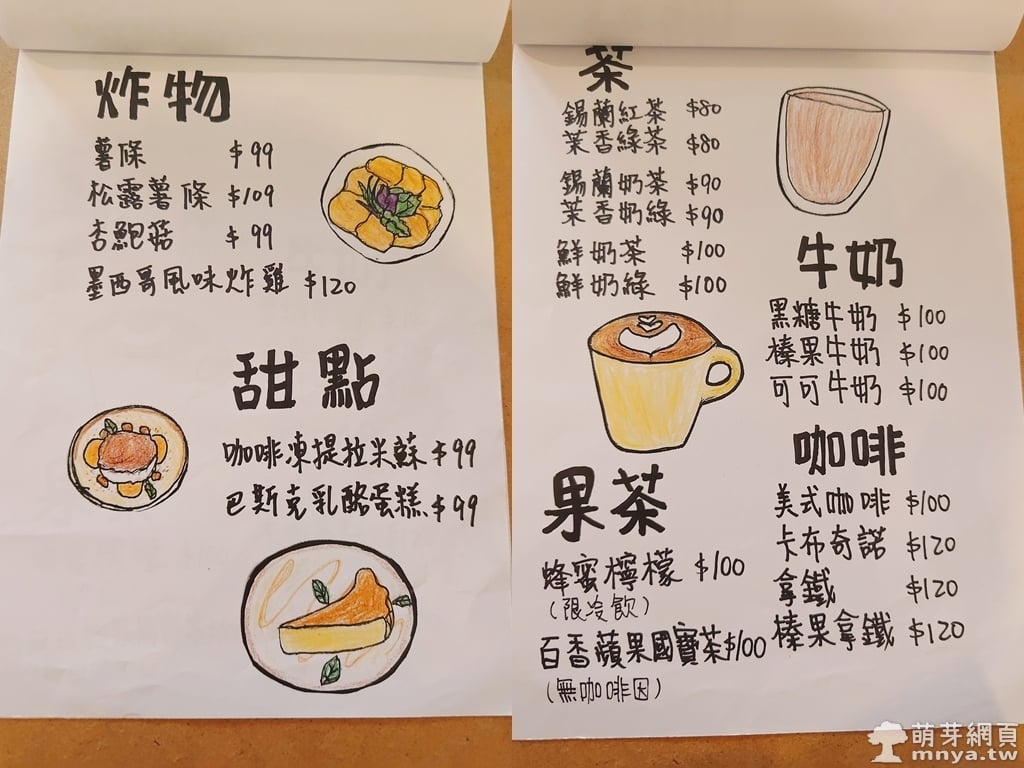 炸物
薯條 $99
松露薯條 $109
杏鮑菇 $99
墨西哥風味炸雞 $120
甜點
咖啡凍提拉米蘇 $99
巴斯克乳酪蛋糕 $99
茶
錫蘭紅茶 $80
茉香綠茶 $80
錫蘭奶茶 $90
茉香奶綠 $90
鮮奶茶 $100
鮮奶綠 $100
牛奶
黑糖牛奶 $100
榛果牛奶 $100
可可牛奶 $100
咖啡
美式咖啡 $100
卡布奇諾 $120
拿鐵 $120
榛果拿鐵 $120
果茶
蜂蜜檸檬 $100
(限冷飲)
百香蘋果國寶茶 $100
(無咖啡因)
萌芽網頁
mnya.tw